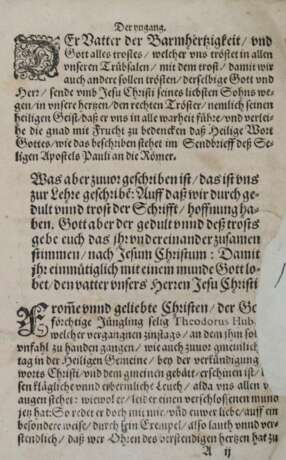 Der yngang.
DEr Vatter der Barmhertzigkeit / vnd
Gott alles trostes / welcher vns tröstet in allen
vnseren Trübsalen / mit dem trost / damit wir
auch andere sollen trösten / derselbige Gott vnd
Herr / sende vmb Jesu Christi seines liebsten Sohns we-
gen / in vnsere hertzen / den rechten Tröster / nemlich seinen
heiligen Geist / daß er vns in alle warheit führe / vnd verlei-
he die gnad mit Frucht zu bedencken daß Heilige Wort
Gottes / wie das beschriben stehet im Sendbrieff deß Se-
ligen Apostels Pauli an die Römer.
Was aber zuuor geschriben ist / das ist vns
zur Lehre geschribē: Auff daß wir durch ge-
dult vnnd trost der Schrifft / hoffnung ha-
ben. Gott aber der gedult vnnd deß trosts
gebe euch das jhr vndereinander zusamen
stimmen / nach Jesum Christum: Damit
jhr einmütiglich mit einem munde Gott lo-
bet / den vatter vnsers Herren Jesu Christi
FRom̄e vnnd geliebte Christen / der Ge
förchtige Jüngling selig Theodorus Hub.
welcher vergangnen zinstags / an dem jhm
vnfahl zu handen gangen / wie auch zuuor gemeinlich
tag in der Heiligen Gemeine / bey der verkündigung
worts Christi / vnd dem gmeinen gebätt / erschinen ist /
sen klägliche vnnd erbermliche Leuch / alda vns allen v
augen stehet: wiewol er / leid er einen verschloßnen mund
jen hat: So redet er doch mit mir / vnd euwer liebe / auff ein
besondere weise / durch sein Exempel / also lauth vnnd ver-
stendlich / daß wer Ohren des verstendigen hertzen hat zu
A ij